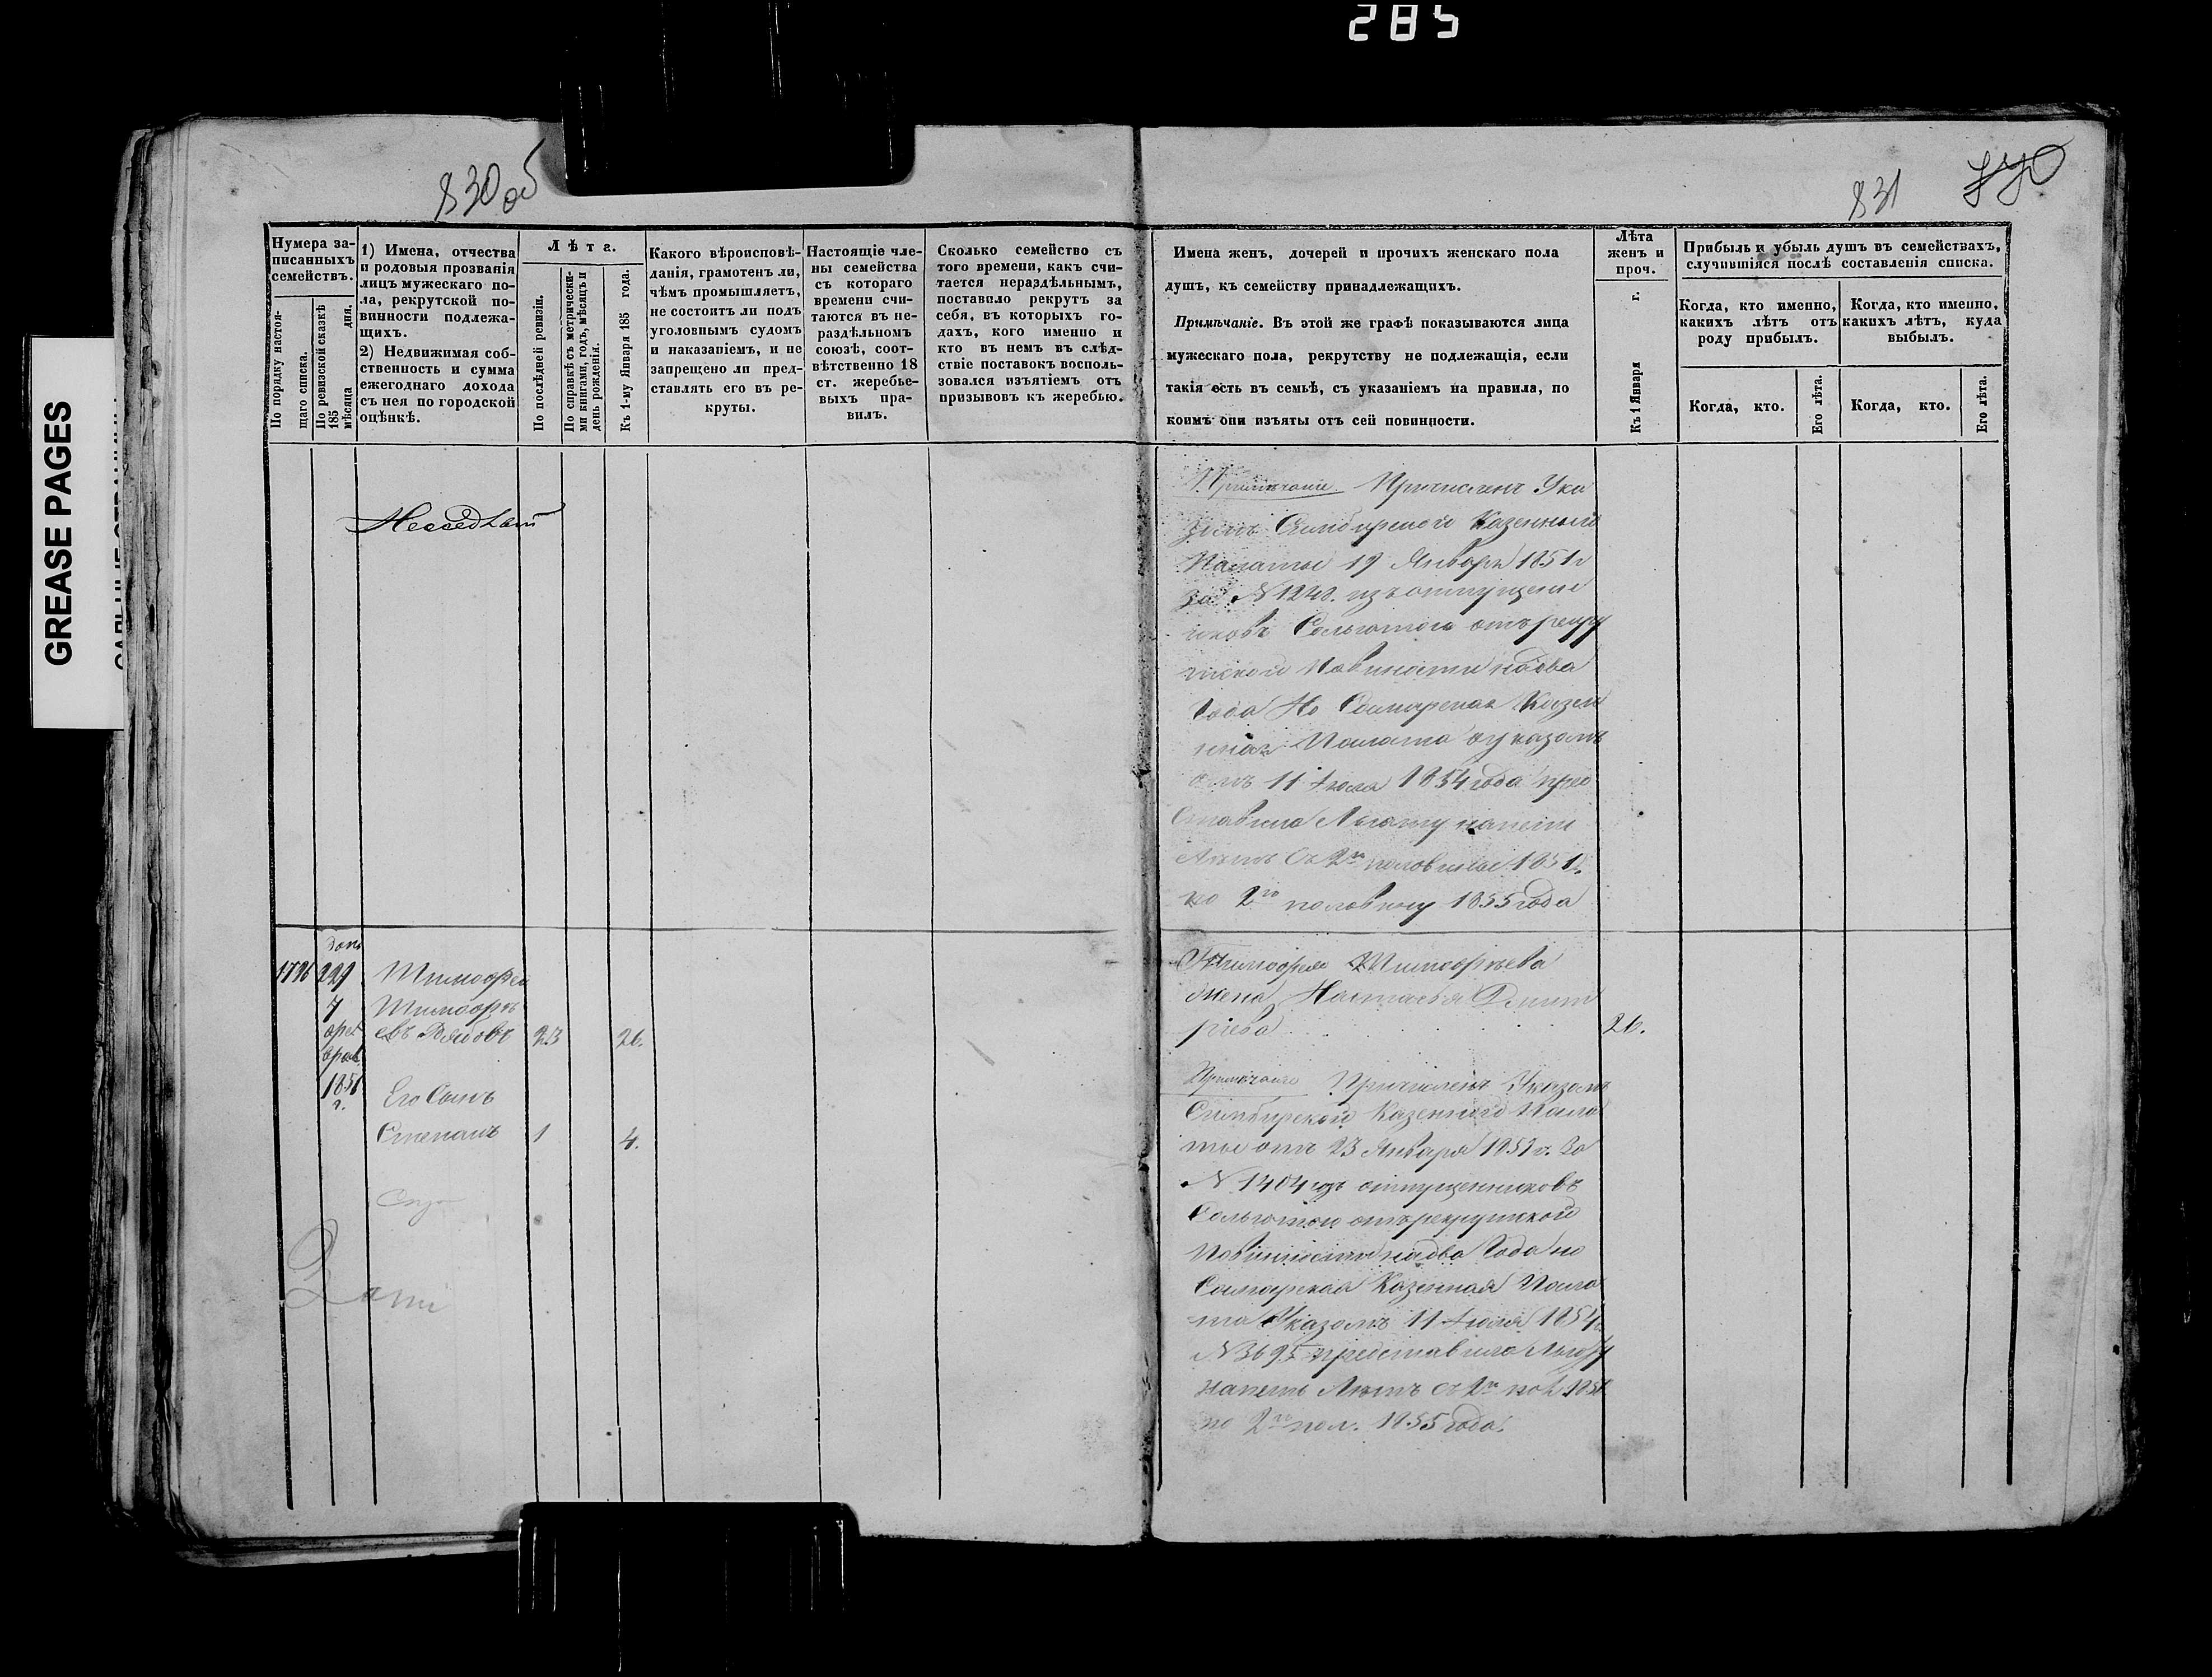 285
GREASE PAGES
830 об
831
Нумера за-
писанныхъ
семействъ.
По порядку настоя-
щаго списка.
По ревизской сказкѣ
185 дня.
мѣсяца
1) Имена, отчества
и родовыя прозванія
лицъ мужескаго по-
ла, рекрутской по-
винности подлежа-
щихъ.
2) Недвижимая соб-
ственность и сумма
ежегоднаго дохода
съ нея по городской
оцѣнкѣ.
Лѣта.
По послѣдней ревизіи.
По справкѣ съ метрически-
ми книгами, годъ, мѣсяцъ и
день рожденія.
Къ 1-му Января 185 года.
Какого вѣроисповѣ-
данія, грамотенъ ли,
чѣмъ промышляетъ,
не состоитъ ли подъ
уголовнымъ судомъ
и наказаніемъ, и не
запрещено ли пред-
ставлять его въ ре-
круты.
Настоящіе чле-
ны семейства
съ котораго
времени счи-
таются въ не-
раздѣльномъ
союзѣ, соот-
вѣтственно 18
ст. жеребье-
выхъ пра-
вилъ.
Сколько семейство съ
того времени, какъ счи-
тается нераздѣльнымъ,
поставило рекрутъ за
себя, въ которыхъ го-
дахъ, кого именно и
кто въ немъ въ слѣд-
ствіе поставокъ восполь-
зовался изъятіемъ отъ
призывовъ къ жеребью.
Имена женъ, дочерей и прочихъ женскаго пола
душъ, къ семейству принадлежащихъ.
Примѣчаніе. Въ этой же графѣ показываются лица
мужескаго пола, рекрутству не подлежащія, если
такія есть въ семьѣ, съ указаніемъ на правила, по
коимъ они изъяты отъ сей повинности.
Лѣта
женъ и
проч.
Къ 1 Января г.
Прибыль и убыль душъ въ семействахъ,
случившіяся послѣ составленія списка.
Когда, кто именно,
какихъ лѣтъ отъ
роду прибылъ.
Когда, кто именно,
какихъ лѣтъ, куда
выбылъ.
Когда, кто.
Его лѣта.
Когда, кто.
Его лѣта.
Примѣчаніе Причисленъ Ука
зомъ Симбирской Казенной
Палаты 19 Января 1851 г
за №1248. изъ отпущени
ковъ Сольготою отъ рекру
тской Повинности на два
Года Но Самарская Казен
ная Палата указомъ
отъ 11 Іюля 1854 года пре
ставила Льготу на пять
Лѣтъ Съ 2й половины 1851 г.
по 2ю половину 1855 года
1726 229 Тимофей
7 Тимофѣ
фев евъ 23 26.
раля
1851 Его Сынъ
г.
Степанъ 1 4.
Тимофея Тимофѣева
жена Настасья Дмит
ріева 26.
Примѣчаніе Причисленъ Указомъ
Симбирской Казенной Пала
ты отъ 23 Января 1851 г. За
№ 1404 изъ отпущенниковъ
Сольготою отъ рекрутской
Повинности на два Года но
Самарская Казенная Пала
та Указомъ 11 Іюля 1854 г
№3695 представила Льготу
на пять Лѣтъ съ 2й пол 1851
по 2ю пол. 1855 года.